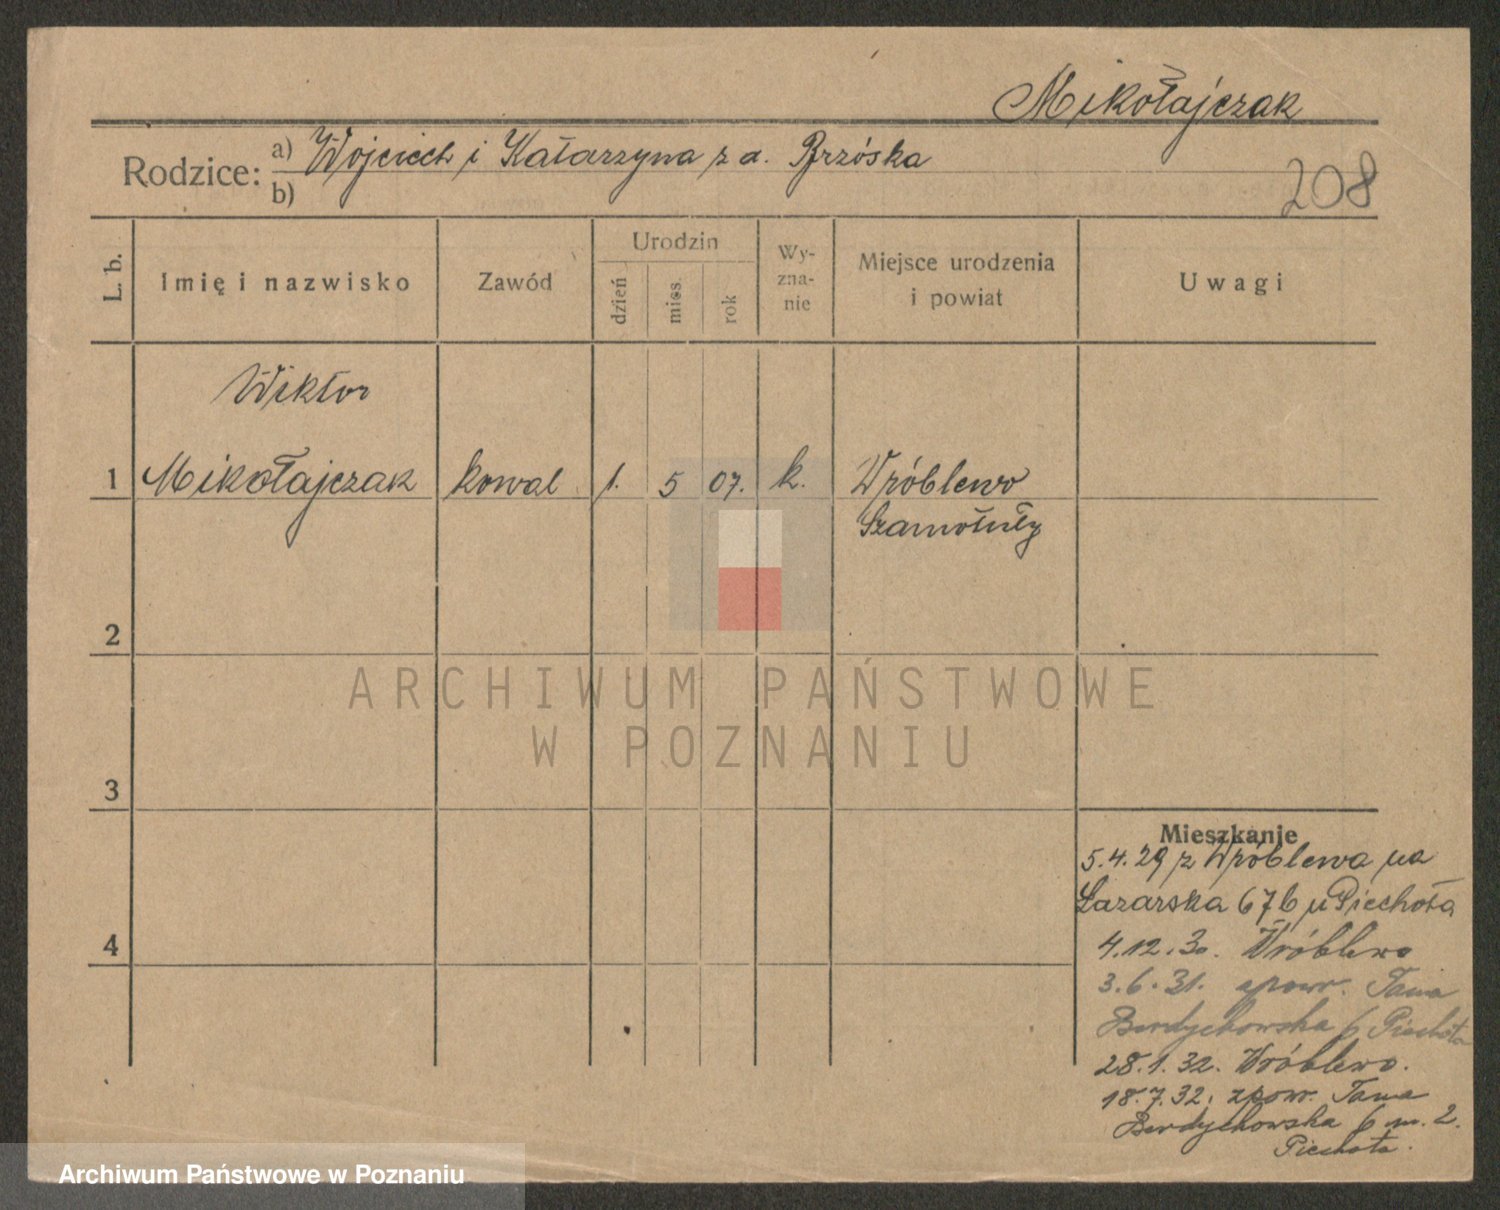 Mikołajczak
Rodzice: a) Wojciech i Katarzyna z d. Brzóska
b)
208
L. b.
Imię i nazwisko
Zawód
Urodzin
dzień
mies.
rok
Wy-
zna-
nie
Miejsce urodzenia
i powiat
Uwagi
Wiktor
1 Mikołajczak kowal 1. 5 07. k. Wróblewo
Szamotuły
2
3
4
Mieszkanje
5.4.29 z Wróblewa na
Łazarska 67b u Piechota
4.12.30. Wróblewo
3.6.31. zpowr. Tama
Berdychowska 6 Piechota
28.1.32. Wróblewo.
18.7.32. zpow. Tama
Berdychowska 6 m. 2.
Piechota.
ARCHIWUM PAŃSTWOWE
W POZNANIU
Archiwum Państwowe w Poznaniu